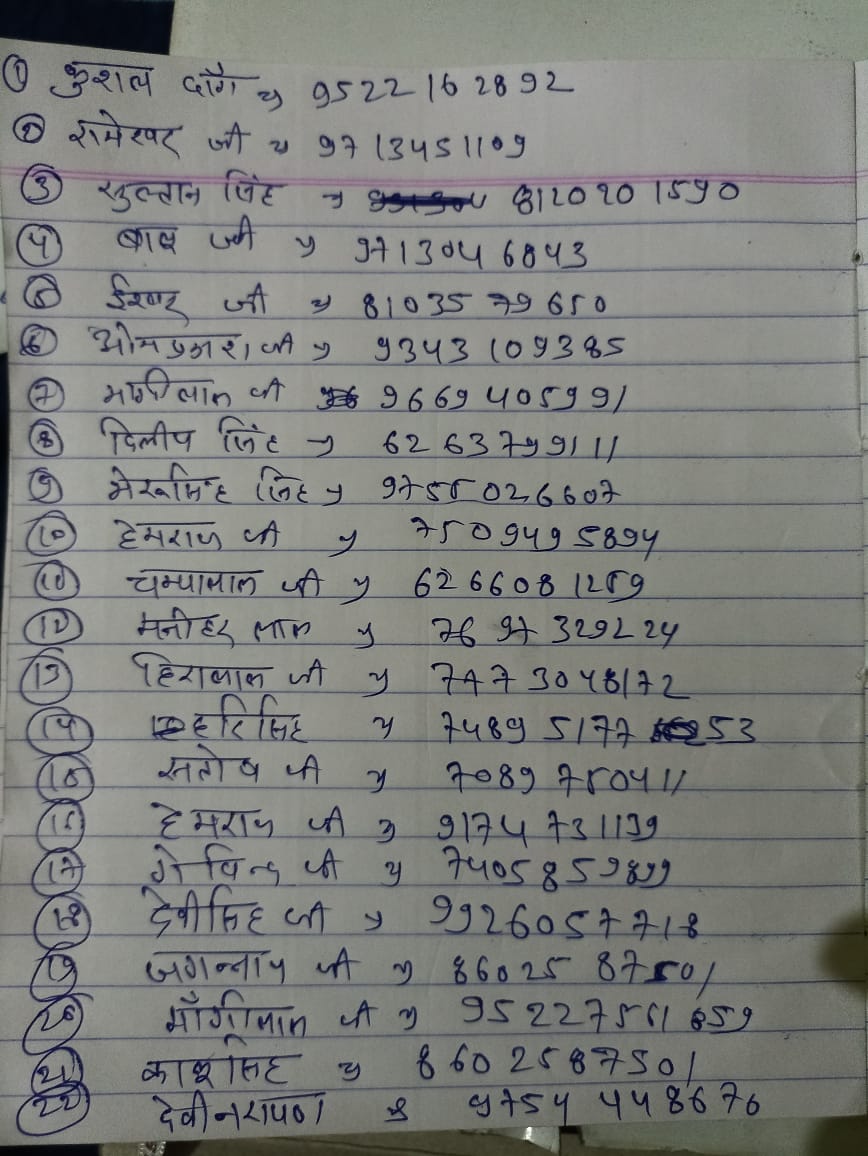 ① कुशल दाँगी → 9522162892
② रामेश्वर जी → 9713451109
③ सुल्तान सिंह → 8120201590
④ बाबु जी → 9713046843
⑤ ईश्वर जी → 8103579650
⑥ ओमप्रकाश जी → 9343109385
⑦ मांगीलाल जी 9669405991
⑧ दिलीप सिंह → 6263799111
⑨ भेरूसिंह सिंह → 9755026607
⑩ हेमराज जी → 7509495894
⑪ चम्पालाल जी → 6266081259
⑫ मनोहर लाल → 7697329224
⑬ हिरालाल जी → 7473048172
⑭ हरिसिंह → 7489517753
⑮ सतोष जी → 7089750411
⑯ हेमराज जी → 9174731139
⑰ गोविन्द जी → 7405859899
⑱ देवीसिंह जी → 9926057718
⑲ जगन्नाथ जी → 8602587501
⑳ माँगीलाल जी →
㉑ कालुसिंह → 8602587501
㉒ देवीनरायण → 9754448676